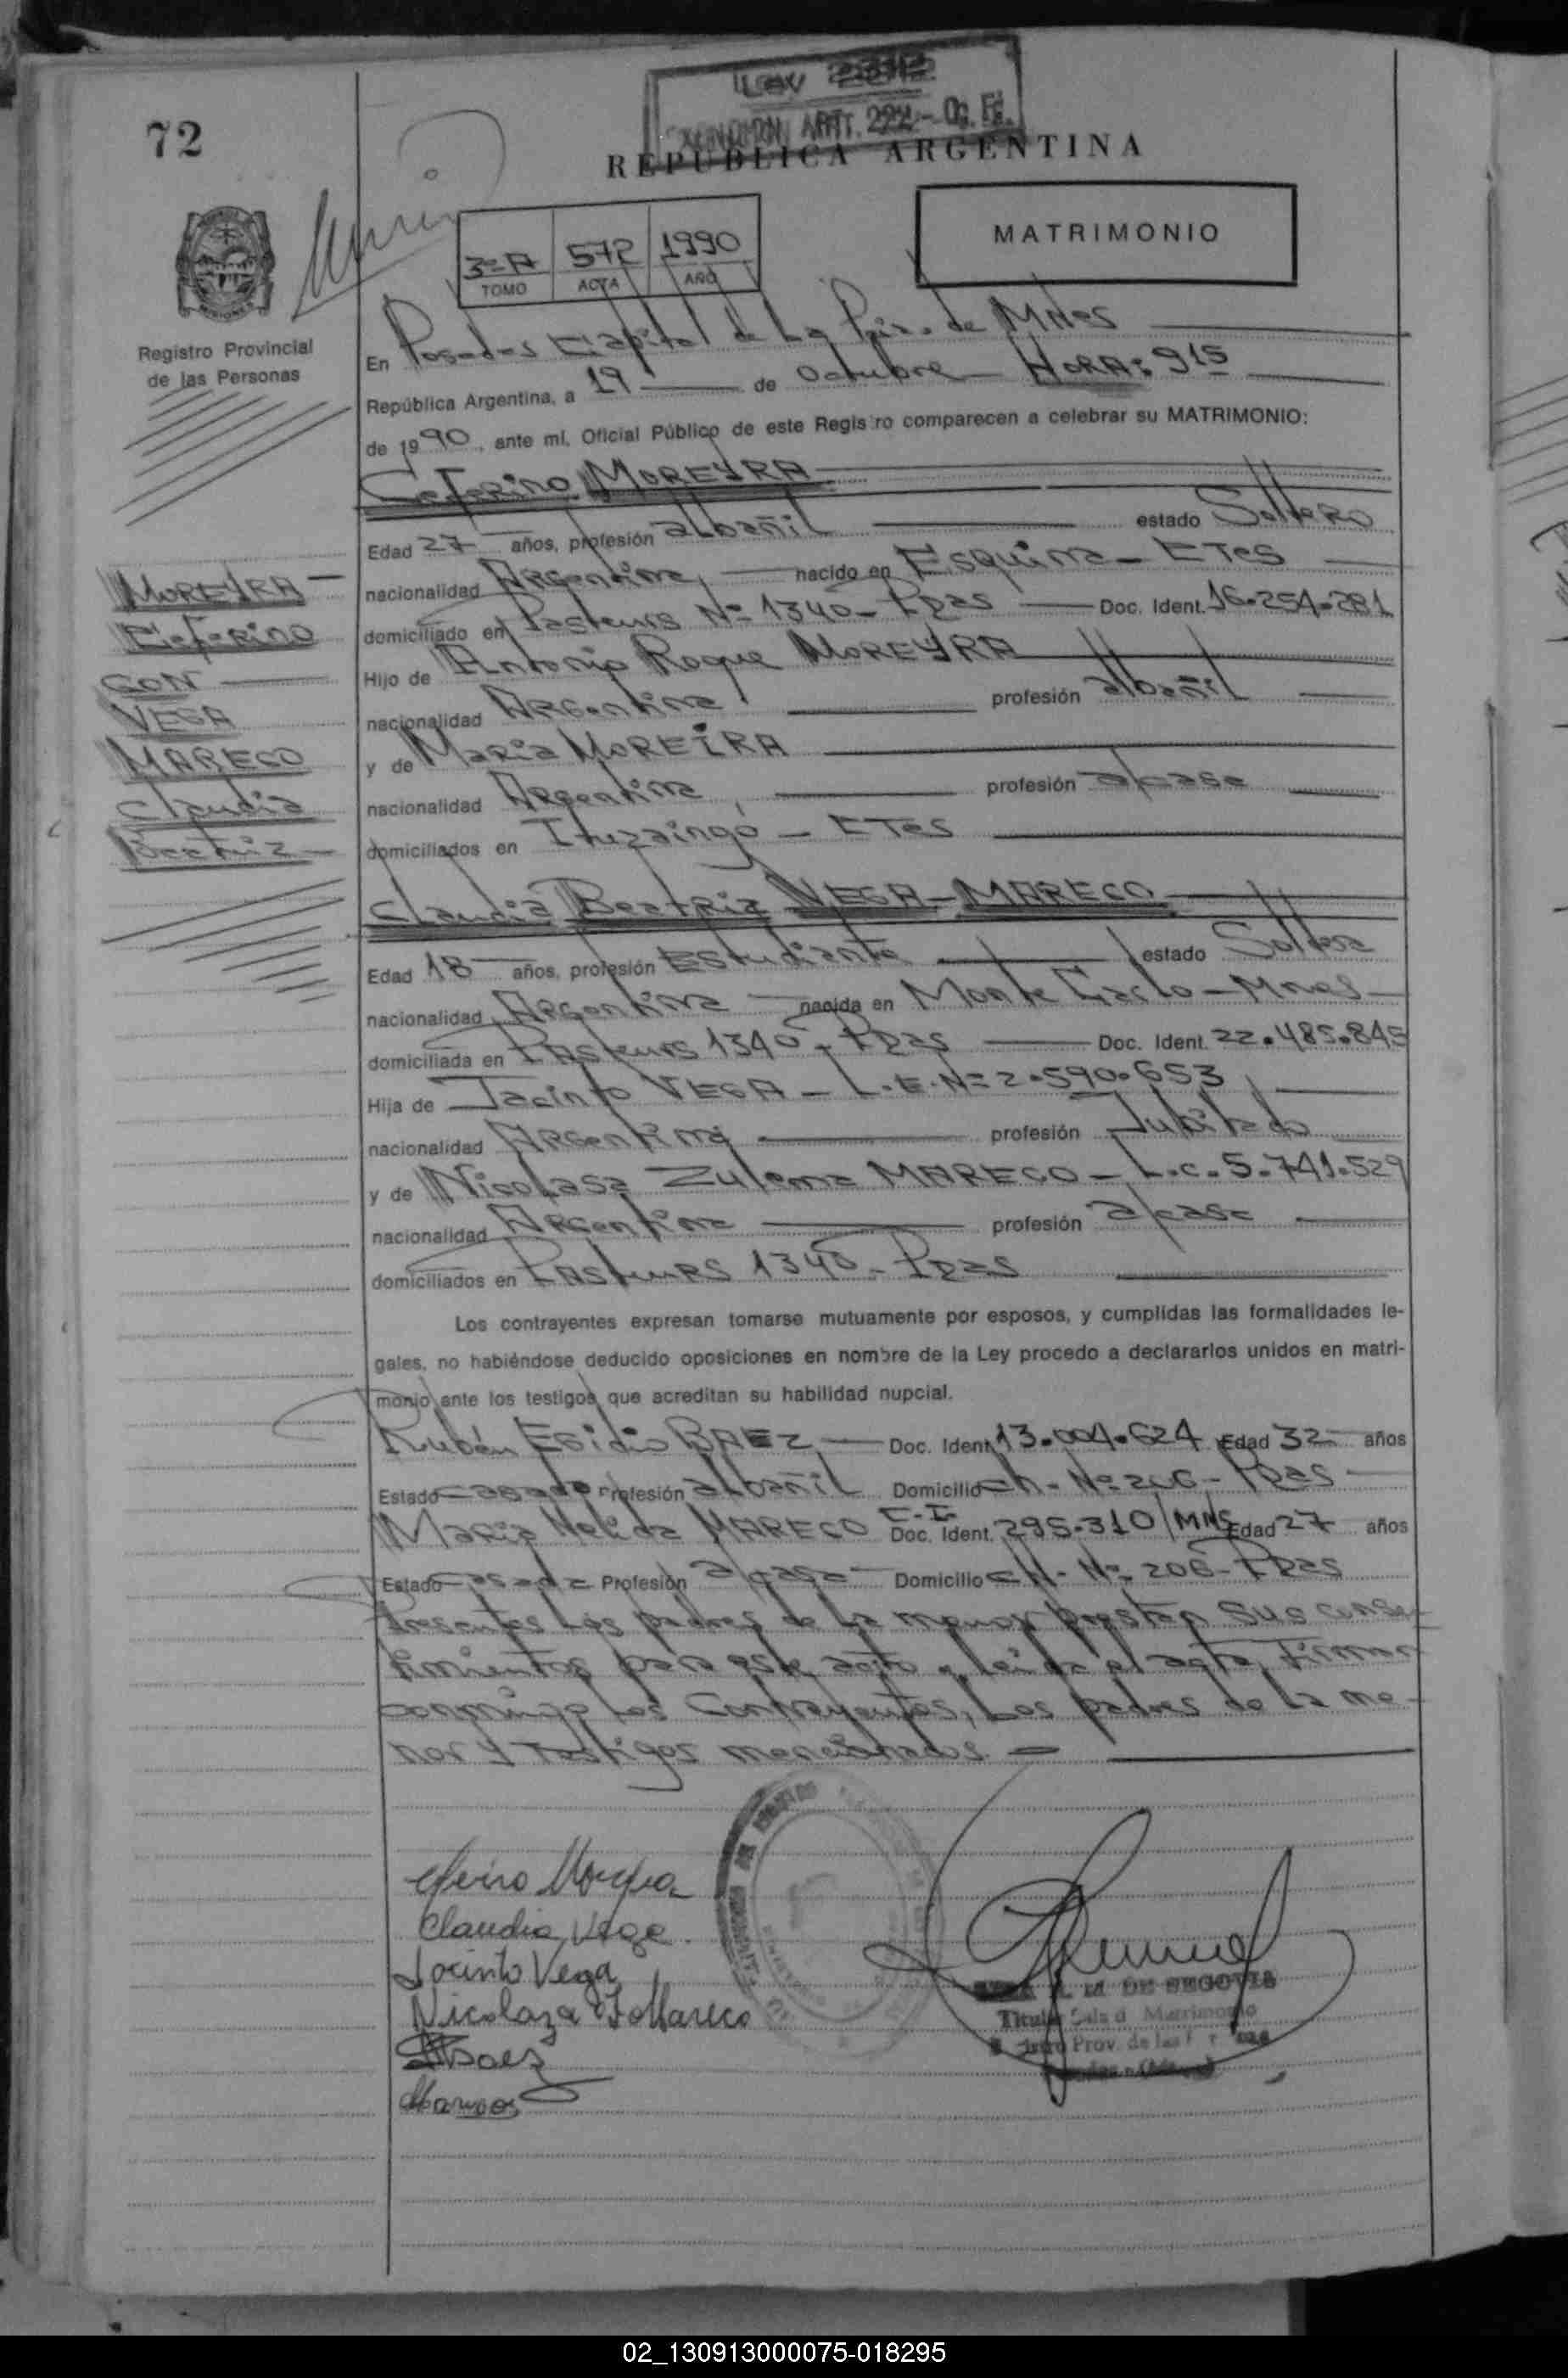 72
REPUBLICA ARGENTINA
3º A 572 1990
TOMO ACTA AÑO
MATRIMONIO
Registro Provincial
de las Personas
En Posadas Capital de La Pcia. de MNes
República Argentina, a 19 de Octubre HORA: 915
de 1990, ante mí, Oficial Público de este Registro comparecen a celebrar su MATRIMONIO:
Ceferino MOREYRA
Edad 27 años, profesión albañil estado Soltero
nacionalidad Argentina, nacido en Esquina - CTes
domiciliado en Pasteurs Nº 1340 - Pdas Doc. Ident. 16.254.281
Hijo de Antonio Roque MOREYRA
nacionalidad Argentina profesión albañil
y de Maria MOREIRA
nacionalidad Argentina profesión a/casa
domiciliados en Ituzaingó - CTes
MOREYRA
Ceferino
CON
VEGA
MARECO
Claudia
Beatriz
Claudia Beatriz VEGA - MARECO
Edad 18 años, profesión Estudiante estado Soltera
nacionalidad Argentina nacida en Monte Carlo - Mnes
domiciliada en Pasteurs 1340 - Pdas Doc. Ident. 22.485.845
Hija de Jacinto VEGA - L.E.Nº 2.590.653
nacionalidad Argentina profesión Jubilado
y de Nicolasa Zulema MARECO - L.C. 5.741.529
nacionalidad Argentina profesión a/casa
domiciliados en Pasteurs 1340 - Pdas
Los contrayentes expresan tomarse mutuamente por esposos, y cumplidas las formalidades le-
gales, no habiéndose deducido oposiciones en nombre de la Ley procedo a declararlos unidos en matri-
monio ante los testigos que acreditan su habilidad nupcial.
Rubén Egidio BAEZ Doc. Ident. 13.004.624 Edad 32 años
Estado casado Profesión albañil Domicilio Ch. Nº 206 - Pdas
C.I.
Maria Nelida MARECO Doc. Ident. 295.310/MNS Edad 27 años
Estado casada Profesión a/casa Domicilio CH. Nº 206 - Pdas
Presentes Los padres de La menor prestan sus consen-
timientos para este acto y leída el acta, Firman
conmigo Los Contrayentes, Los padres de La me-
nor y Testigos mencionados
Claudia Vega
Jacinto Vega
Nicolaza Z Mareco
Baez
DE SEGOVIA
Titular Sala d Matrimonio
Prov. de las
02_130913000075-018295